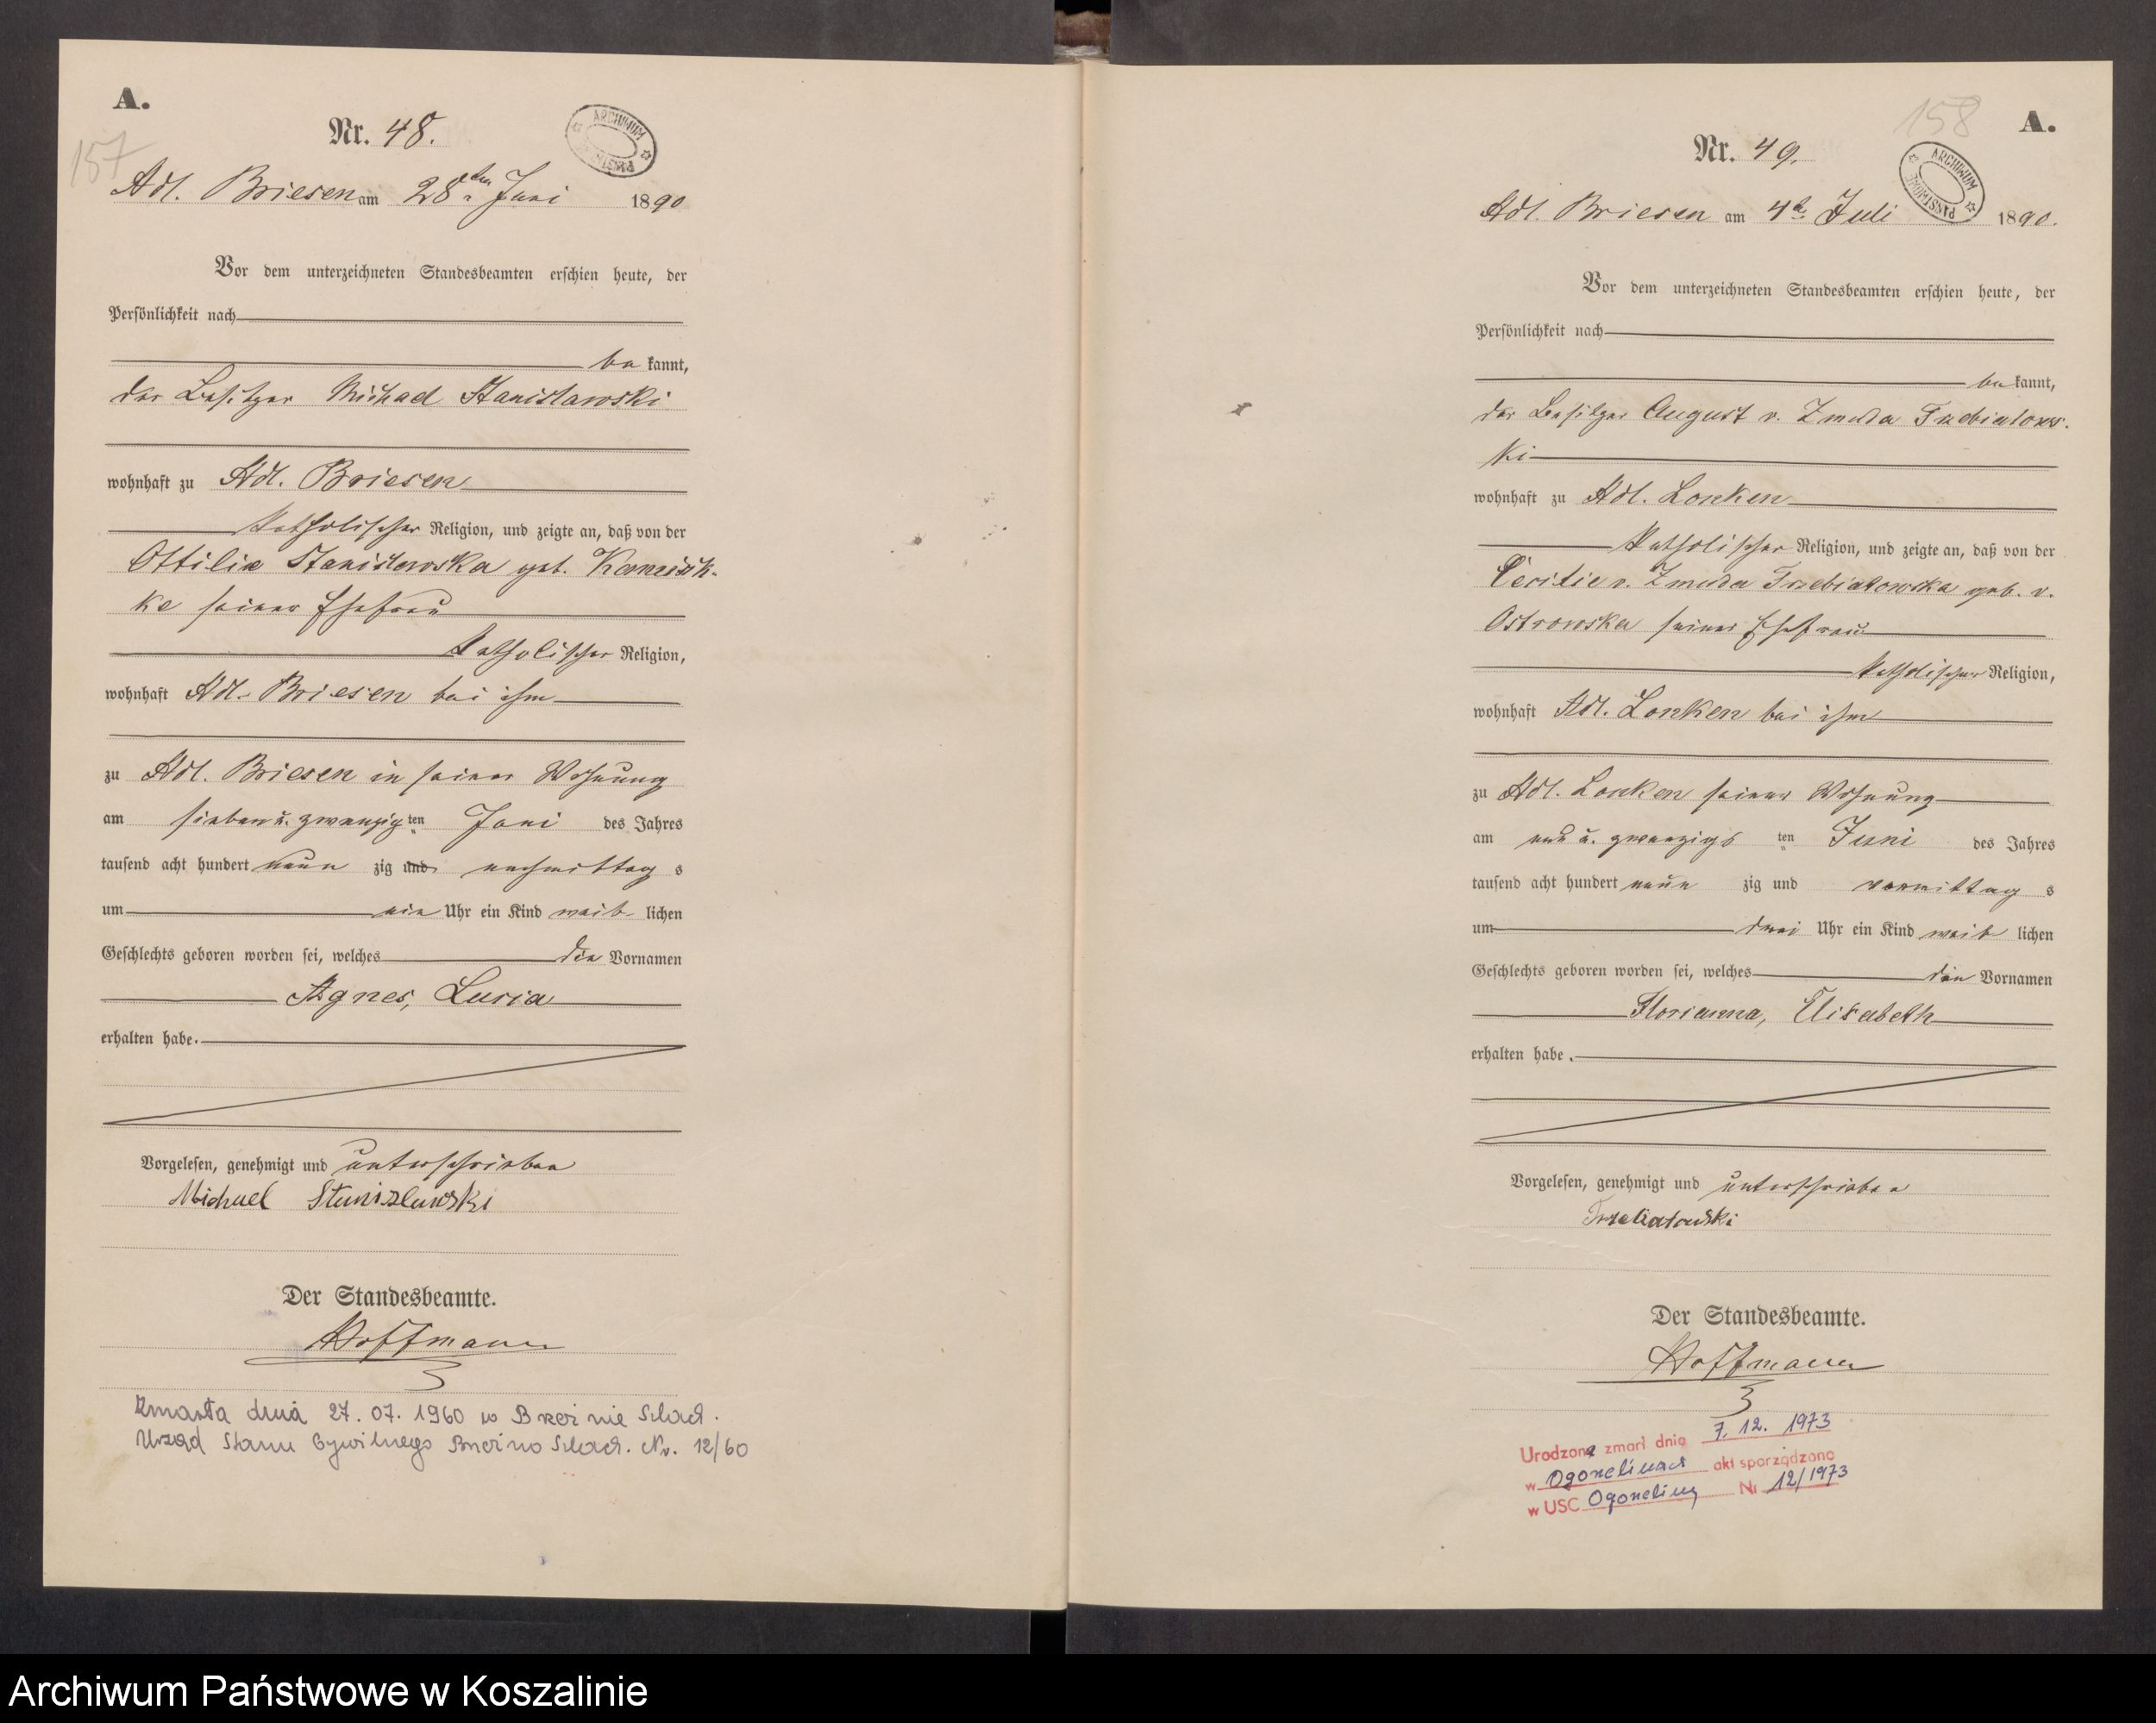 A.
157
Nr. 48.
ARCHIWUM PAŃSTWOWE
Adl. Briesen am 28ten Juni 1890
Vor dem unterzeichneten Standesbeamten erschien heute, der
Persönlichkeit nach
be kannt,
der Besitzer Michael Stanislawski
wohnhaft zu Adl. Briesen
katholischer Religion, und zeigte an, daß von der
Ottilie Stanislawska geb.
ke seiner Ehefrau
katholischer Religion,
wohnhaft Adl. Briesen bei ihm
zu Adl. Briesen in seiner Wohnung
am sieben u. zwanzig ten Juni des Jahres
tausend acht hundert neun zig und nachmittag s
um ein Uhr ein Kind weib lichen
Geschlechts geboren worden sei, welches die Vornamen
Agnes, Lucia
erhalten habe.
Vorgelesen, genehmigt und unterschrieben
Michael Staniszlawski
Der Standesbeamte.
Hoffmann
Zmarła dnia 27. 07. 1960 w Brzeźnie Szlach.
Urząd Stanu Cywilnego Brzeźno Szlach. Nr. 12/60
158
A.
Nr. 49.
ARCHIWUM PAŃSTWOWE
Adl. Briesen am 4te Juli 1890.
Vor dem unterzeichneten Standesbeamten erschien heute, der
Persönlichkeit nach
be kannt,
der Besitzer August v. Zmuda Trzebiatows-
ki
wohnhaft zu Adl. Lonken
katholischer Religion, und zeigte an, daß von der
Cecilie v. Zmuda Trzebiatowska geb. v.
Ostrowska seiner Ehefrau
katholischer Religion,
wohnhaft Adl. Lonken bei ihm
zu Adl. Lonken seiner Wohnung
am u. zwanzigs ten Juni des Jahres
tausend acht hundert neun zig und vormittag s
um drei Uhr ein Kind weib lichen
Geschlechts geboren worden sei, welches die Vornamen
Florianna, Elisabeth
erhalten habe.
Vorgelesen, genehmigt und unterschrieben
Trzebiatowski
Der Standesbeamte.
Hoffmann
Urodzona zmarł dnia 7. 12. 1973
w Ogorzelinach akt sporządzono
w USC Ogorzeliny Nr 12/1973
Archiwum Państwowe w Koszalinie